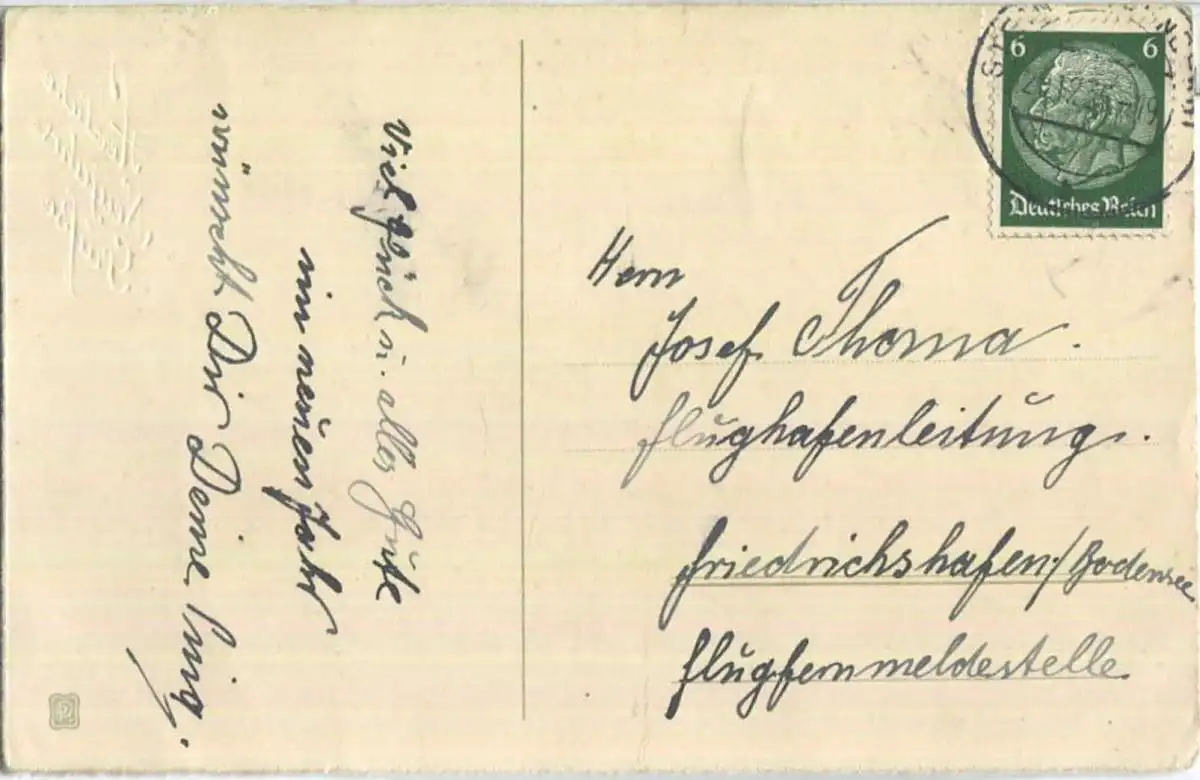 Viel Glück ü. alles Gute
im neuen Jahr
wünscht Dir Deine
6 6
Deutsches Reich
Herrn
Josef Thoma.
Flughafenleitung.
Friedrichshafen/Bodensee
Flugfernmeldestelle.